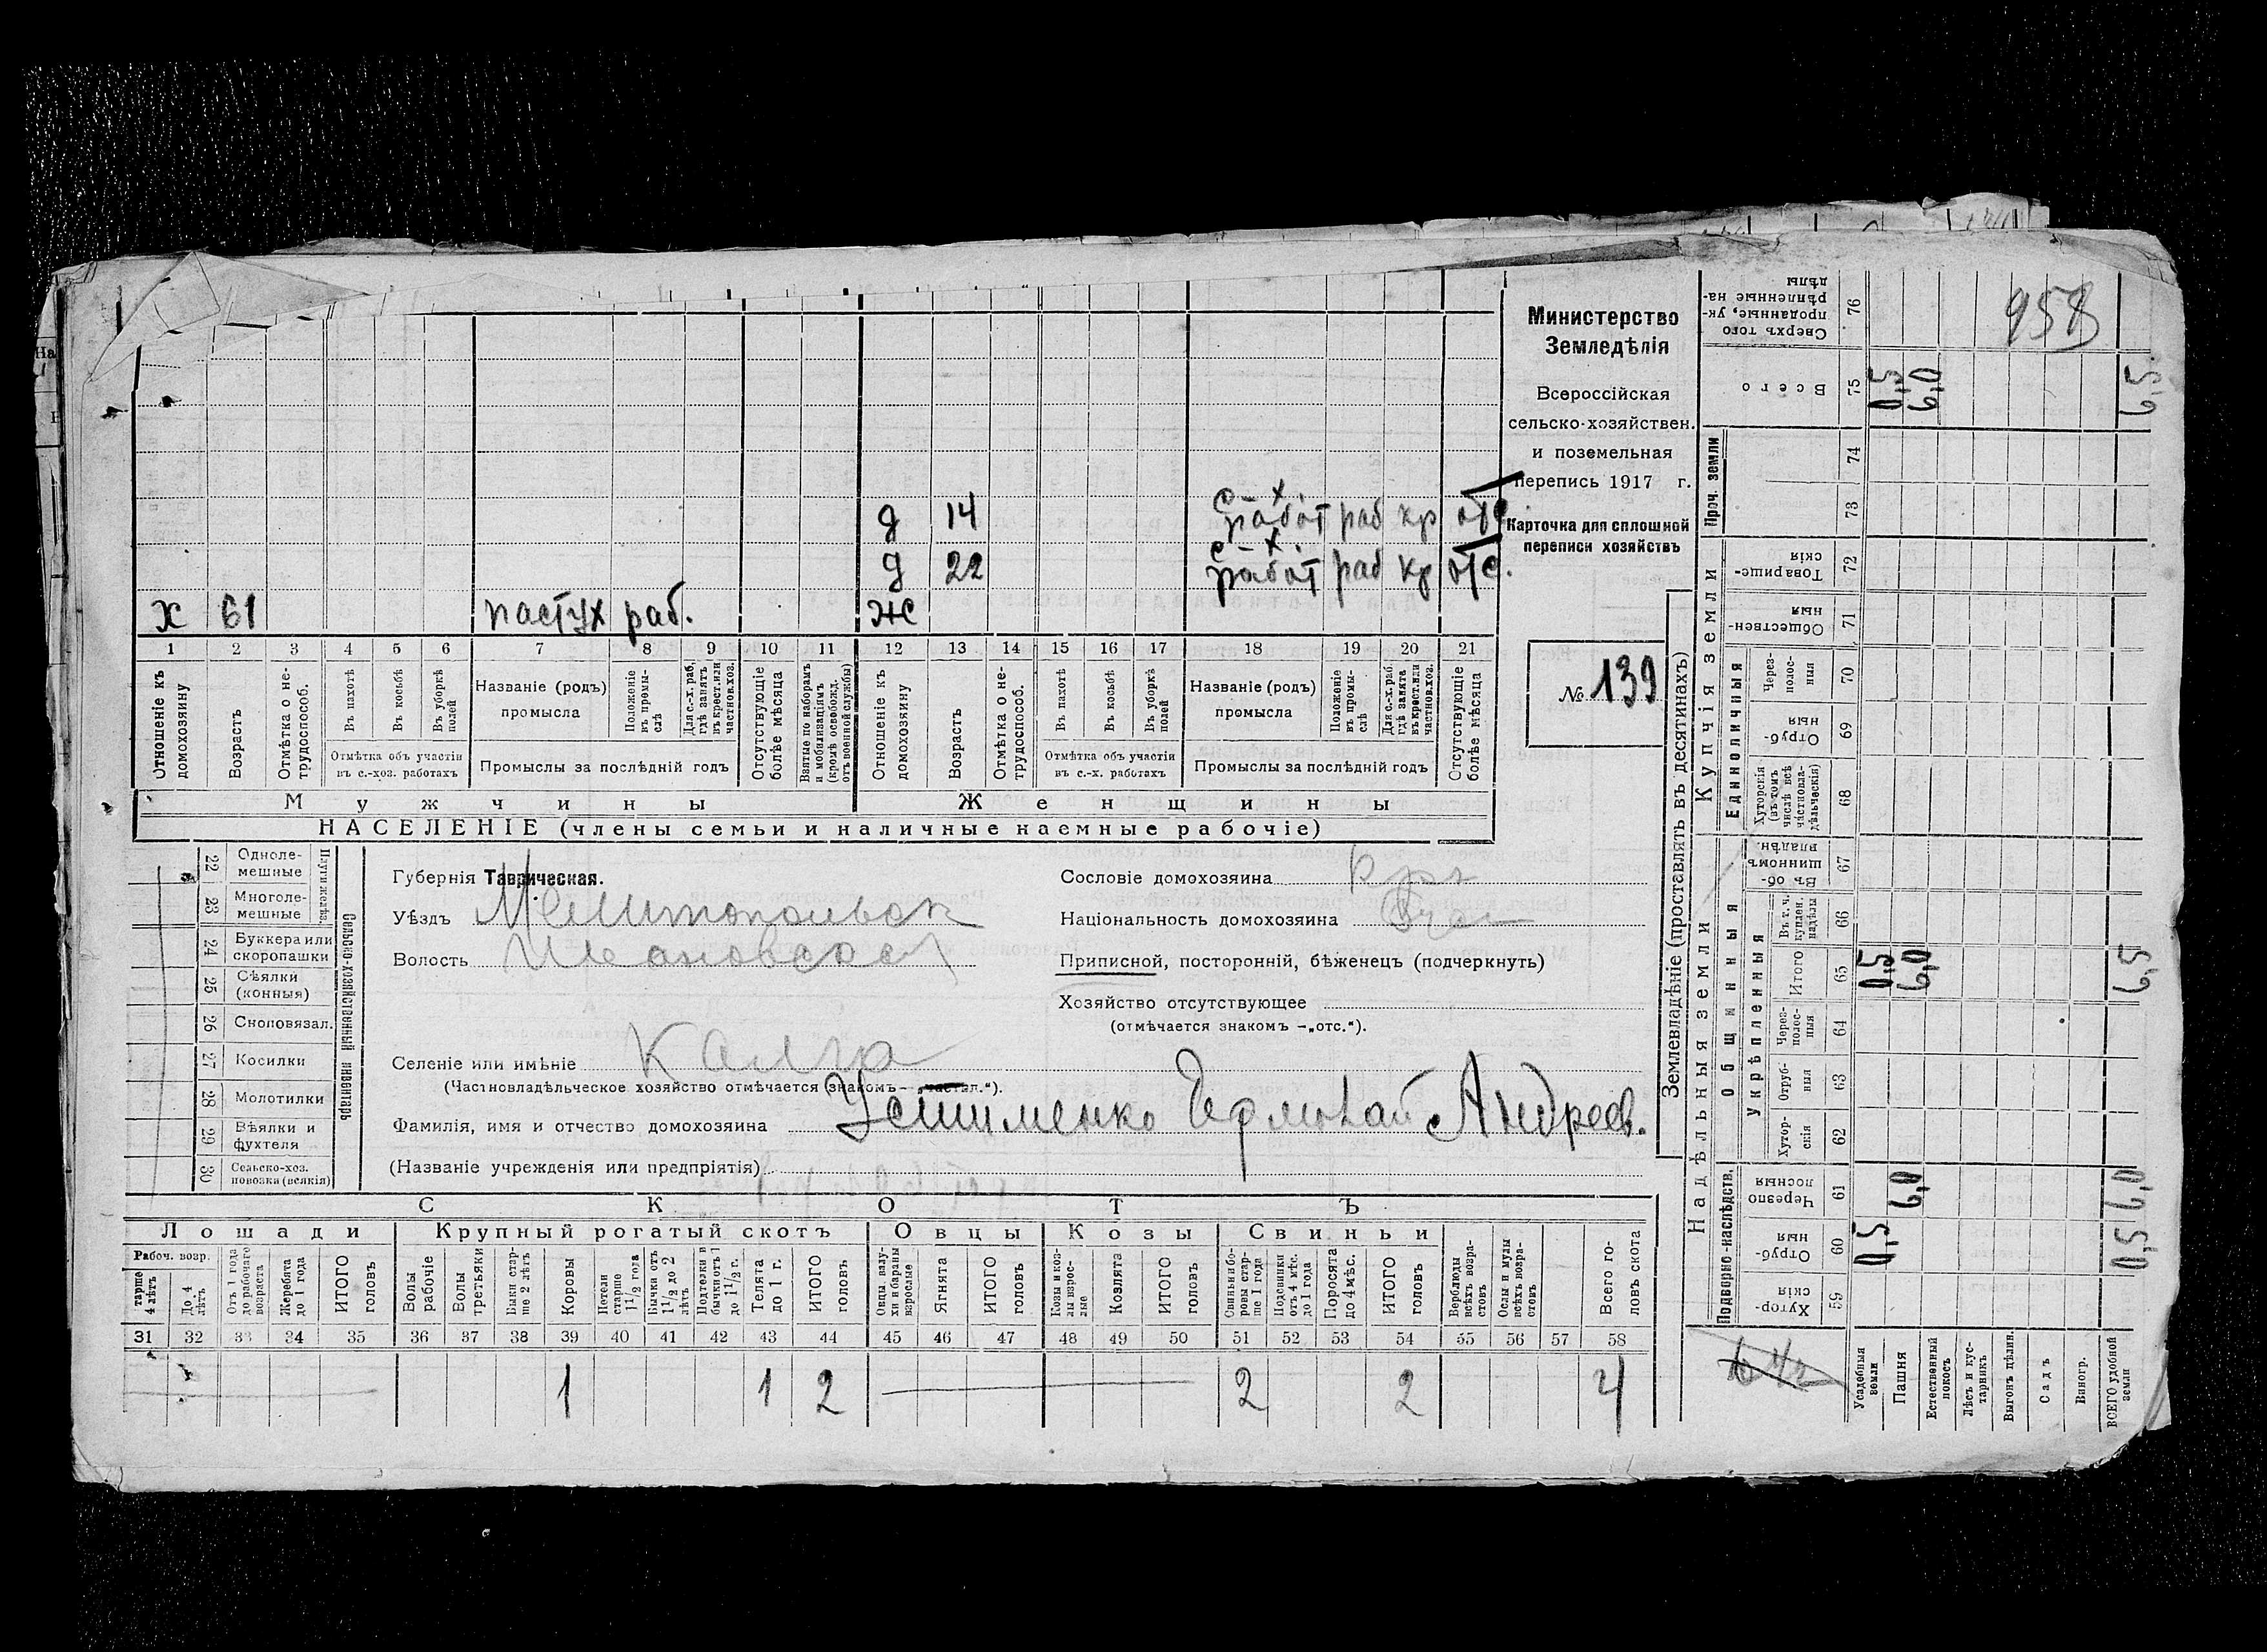 958
Министерство
Земледѣлія
Всероссійская
сельско-хозяйствен.
и поземельная
перепись 1917 г.
Карточка для сплошной
переписи хозяйствъ
№ 139
д 14 с-х. работ раб кр отс
д 22 с-х. работ раб кр отс.
х 61 пастух раб. ж
1 2 3 4 5 6 7 8 9 10 11 12 13 14 15 16 17 18 19 20 21
Отношеніе къ домохозяину
Возрастъ
Отмѣтка о нетрудоспособ.
Въ пахотѣ
Въ косьбѣ
Въ уборкѣ полей
Отмѣтка объ участіи
въ с.-хоз. работахъ
Названіе (родъ)
промысла
Положеніе въ промыслѣ
Для с.-х. раб., гдѣ занятъ въ крест. или частнов. хоз.
Промыслы за послѣдній годъ
Отсутствующіе болѣе мѣсяца
Взятые по наборамъ и мобилизаціямъ (кромѣ освобожд. отъ военной службы)
Отношеніе къ домохозяину
Возрастъ
Отмѣтка о нетрудоспособ.
Въ пахотѣ
Въ косьбѣ
Въ уборкѣ полей
Отмѣтка объ участіи
въ с.-х. работахъ
Названіе (родъ)
промысла
Положеніе въ промыслѣ
Для с.-х. раб. гдѣ занята въ крест. или частнов. хоз.
Промыслы за послѣдній годъ
Отсутствующіе болѣе мѣсяца
Мужчины Женщины
НАСЕЛЕНІЕ (члены семьи и наличные наемные рабочіе)
Сельско-хозяйственный инвентарь
22 Однолемешные
23 Многолемешные
24 Буккера или скоропашки
25 Сѣялки (конныя)
26 Сноповязал.
27 Косилки
28 Молотилки
29 Вѣялки и фухтеля
30 Сельско-хоз. повозка (всякія)
Губернія Таврическая.
Уѣздъ Мелитопольск
Волость Ивановской
Селеніе или имѣніе Калга
(Частновладѣльческое хозяйство отмѣчается знакомъ — „частвл.“).
Сословіе домохозяина кр
Національность домохозяина
Приписной, посторонній, бѣженецъ (подчеркнуть)
Хозяйство отсутствующее
(отмѣчается знакомъ —„отс.“).
Фамилія, имя и отчество домохозяина Устименко Андреев.
(Названіе учрежденія или предпріятія)
СКОТЪ
Лошади Крупный рогатый скотъ Овцы Козы Свиньи
Рабоч. возр.
тарше 4 лѣтъ
До 4 лѣтъ
Отъ 1 года до рабочаго возраста
Жеребята до 1 года
ИТОГО головъ
Волы рабочіе
Волы третьяки
Быки старше 2 лѣтъ
Коровы
Нетели старше 1 1/2 года
Бычки отъ 1 1/2 до 2 лѣтъ
Подтелки и бычки отъ 1 до 1 1/2 г.
Телята до 1 г.
ИТОГО головъ
Овцы, валухи и бараны взрослые
Ягнята
ИТОГО головъ
Козы и козлы взрослые
Козлята
ИТОГО головъ
Свиньи и боровы старше 1 года
Подсвинки отъ 4 мѣс. до 1 года
Поросята до 4 мѣс.
ИТОГО головъ
Верблюды всѣхъ возрастовъ
Ослы и мулы всѣхъ возрастовъ
Всего головъ скота
31 32 33 34 35 36 37 38 39 40 41 42 43 44 45 46 47 48 49 50 51 52 53 54 55 56 57 58
1 1 2 2 2 4
Землевладѣніе (проставлять въ десятинахъ)
Надѣльныя земли Купчія земли Проч. земли
Подворно-наслѣдств. Общинныя Единоличныя
Укрѣпленныя
Хуторскія 59
Отрубныя 60 0,5 0,5
Черезполосныя 61 6,0 6,0
Хуторскія 62
Отрубныя 63
Черезполосныя 64
Итого 65 0,5 6,0 6,5
Въ т. ч. куплен. надѣлы 66
Въ общинномъ владѣн. 67
Хуторскія (въ томъ числѣ всѣ частновладѣльческія) 68
Отрубныя 69
Черезполосныя 70
Общественныя 71
Товарищескія 72
73
74
Всего 75 0,5 6,0 6,5
Сверхъ того проданные, укрѣпленные надѣлы 76
6 1/2
Усадебныя земли
Пашня
Естественный покосъ
Лѣсъ и кустарникъ
Выгонъ цѣлин.
Садъ
Виногр.
ВСЕГО удобной земли